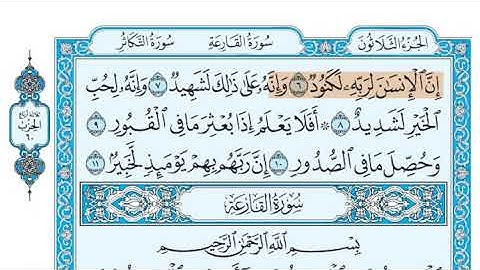 الجزء الثلاثون
سورة القارعة
سورة التكاثر
إِنَّ الْإِنسَانَ لِرَبِّهِ لَكَنُودٌ ٦ وَإِنَّهُ عَلَىٰ ذَٰلِكَ لَشَهِيدٌ ٧ وَإِنَّهُ لِحُبِّ
الْخَيْرِ لَشَدِيدٌ ٨ ۞ أَفَلَا يَعْلَمُ إِذَا بُعْثِرَ مَا فِي الْقُبُورِ ٩
وَحُصِّلَ مَا فِي الصُّدُورِ ١٠ إِنَّ رَبَّهُم بِهِمْ يَوْمَئِذٍ لَّخَبِيرٌ ١١
سُورَةُ القَارِعَةِ
بِسْمِ اللَّهِ الرَّحْمَٰنِ الرَّحِيمِ
الحزب
٦٠